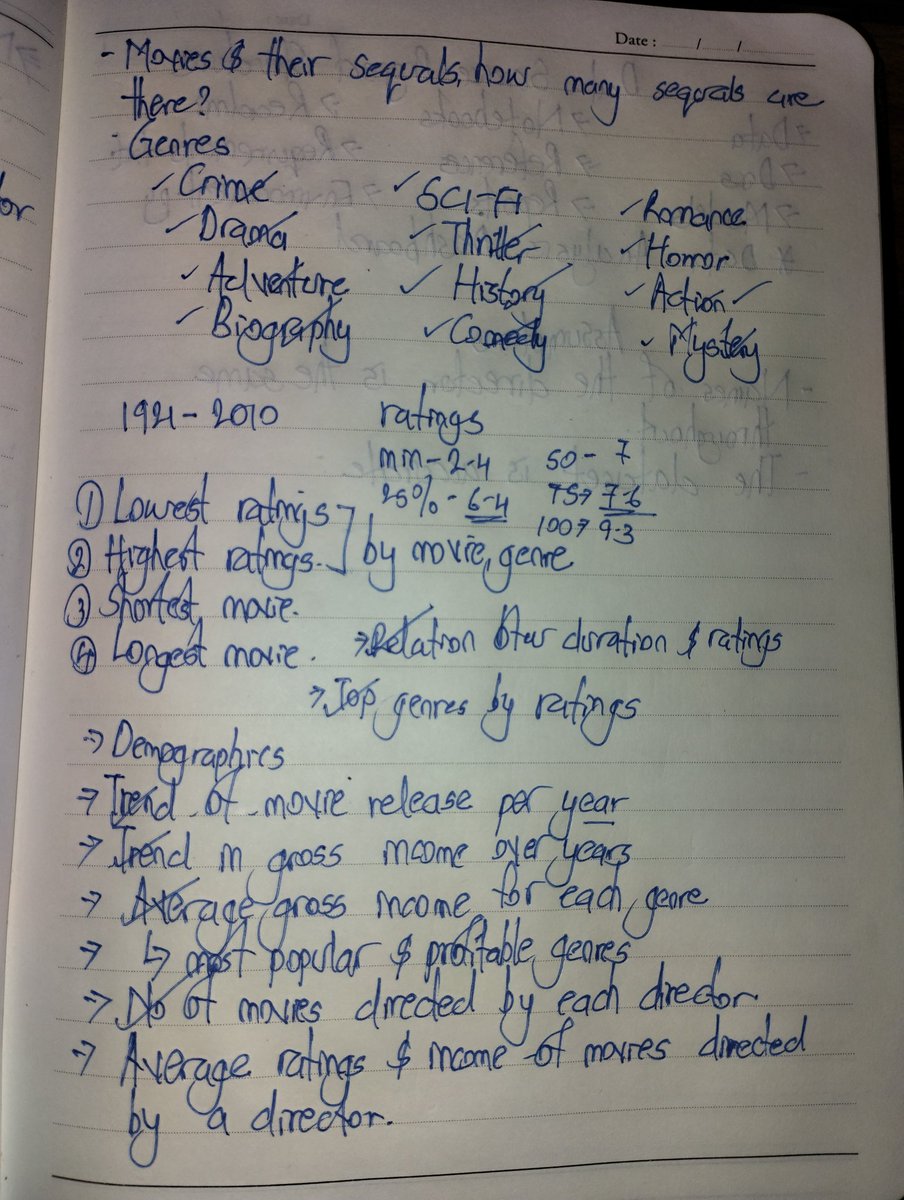 Date : / /
- Movies & their sequals, how many sequals are
there?
- Genres
✓ Crime ✓ SCI-FI ✓ Romance
✓ Drama ✓ Thriller ✓ Horror
✓ Adventure ✓ History ✓ Action ✓
✓ Biography ✓ Comedy ✓ Mystery
1921 - 2010 ratings
min - 2.4 50 - 7
25% - 6.4 75 → 7.6
100 → 9.3
① Lowest ratings
② Highest ratings. by movie, genre
③ Shortest movie.
④ Longest movie. → Relation btw duration & ratings
→ Top genres by ratings
→ Demographics
→ Trend of movie release per year
→ Trend in gross income over years
→ Average gross income for each genre
→ ↳ most popular & profitable genres
→ No of movies directed by each director.
→ Average ratings & income of movies directed
by a director.
or